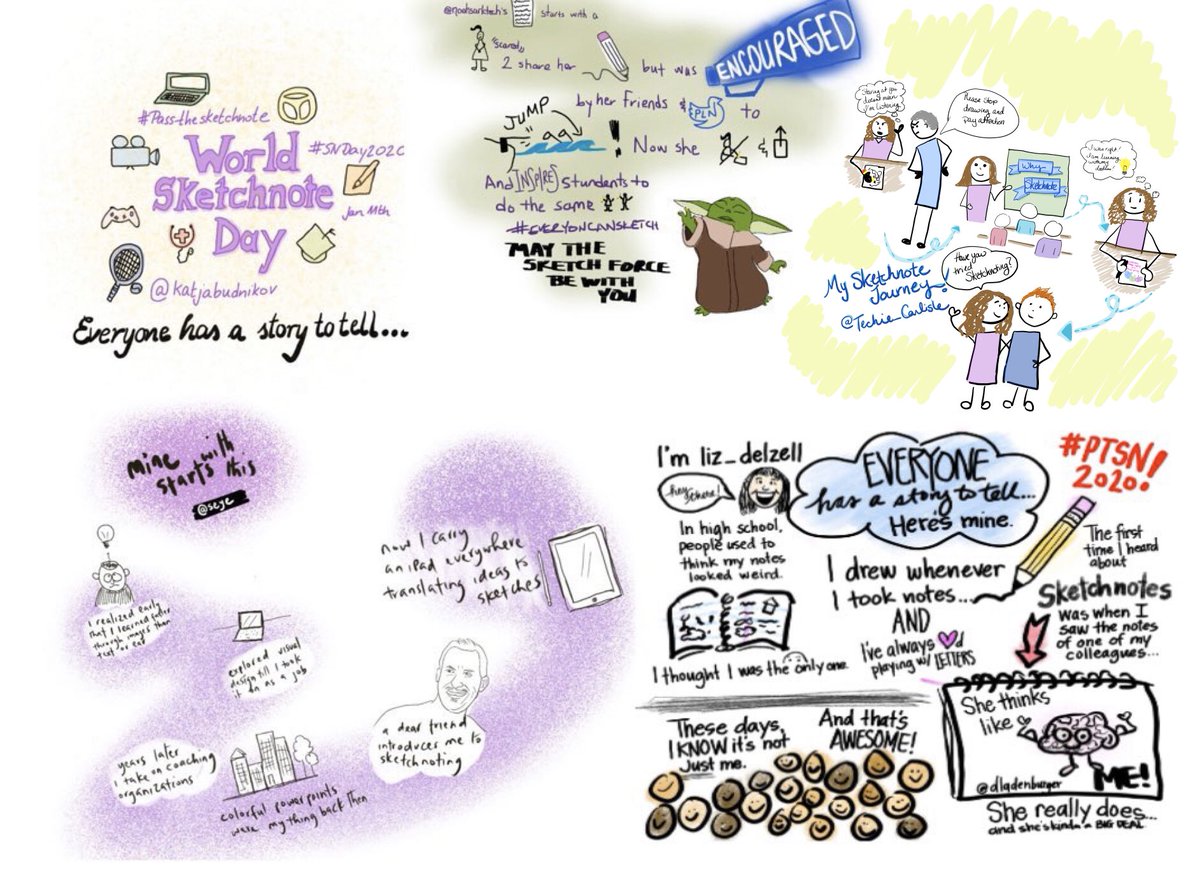 #Passthesketchnote
World
Sketchnote
Day
#SNDay2020
Jan 11th
@katjabudnikov
Everyone has a story to tell...
@noahsarktech's starts with a
"scared"
2 share her but was
ENCOURAGED
by her friends & PLN to
JUMP
! Now she &
And INSPIRES students to
do the same
#EVERYONCANSKETCH
MAY THE
SKETCH FORCE
BE WITH
YOU
Staring at you
doesn't mean
I'm listening
Please stop
drawing and
pay attention
Why
Sketchnote
I was right!
I am learning
with my
doodles!
My Sketchnote
Journey!
@Techie_Carlisle
Have you
tried
Sketchnoting?
mine
starts with
this
@seye
I realized early
that I learned better
through images than
text or ear
explored visual
design till I took
it on as a job
years later
i take on coaching
organizations
colorful powerpoints
were my thing back then
a dear friend
introduces me to
sketchnoting
now I carry
an ipad everywhere
translating ideas to
sketches
I'm liz_delzell
hey there!
EVERYONE
has a story to tell...
HERE'S mine.
#PTSN!
2020!
In high school,
people used to
think my notes
looked weird.
I thought I was the only one.
I drew whenever
I took notes...
AND
I've always d
playing w/ LETTERS
The first
time I heard
about
Sketchnotes
was when I
saw the notes
of one of my
colleagues...
She thinks
like
ME!
@dladenburger
She really does...
and she's kinda a BIG DEAL
These days,
I KNOW it's not
Just me.
And that's
AWESOME!